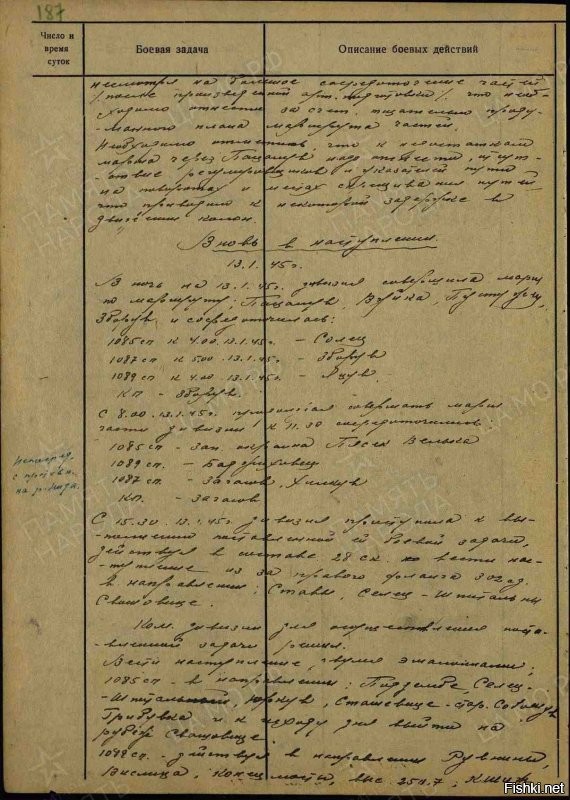 187
Число и время суток
Боевая задача
Описание боевых действий
несмотря на большое сосредоточение частей
/ после произведенной арт. подготовки /, что необ-
ходимо отнести за счет тщательно проду-
-манного плана маршрута частей.
Необходимо отметить, что к недостаткам
марша через Пацанув надо отнести, отсут-
-ствие регулировщиков и указателей пути
на поворотах и местах скрещивания путей,
что приводило к некоторой задержке в
движении колон.
Вновь в наступлении
13.1.45г.
В ночь на 13.1.45г. дивизия совершила марш
по маршруту: Пацанув, Вуйка,
Зборув и сосредоточилась:
1085 сп к 4.00 13.1.45г. - Солец
1087 сп к 5.00 13.1.45г. - Зборув
1089 сп к 4.00 13.1.45г. -
КП - Зборув
С 8.00 13.1.45г. продолжая совершать марш
части дивизии к 11.30 сосредоточились
1085 сп - зап. окраина Пясек Велька
1089 сп. -
1087 сп - Загосьв,
КП. - Загосьв
С 15.30 13.1.45г. дивизия приступила к вы-
-полнению поставленной ей боевой задачи,
действуя в составе 28 ск. вести нас-
-тупление из за правого фланга 302 сд.
в направлении: Ставы, Селец - Шпитальны
Сташовице.
Ком. дивизии для осуществления поста-
-вленной задачи решил.
Вести наступление, двумя эшелонами;
1085 сп - в направлении:
Селец-
-Шпитальный, Юркув,
и к исходу дня выйти на
рубеж
сп. - действуя в направлении
Вислица, выс. 254,7,
ПАМЯТЬ НАРОДА
Fishki.net